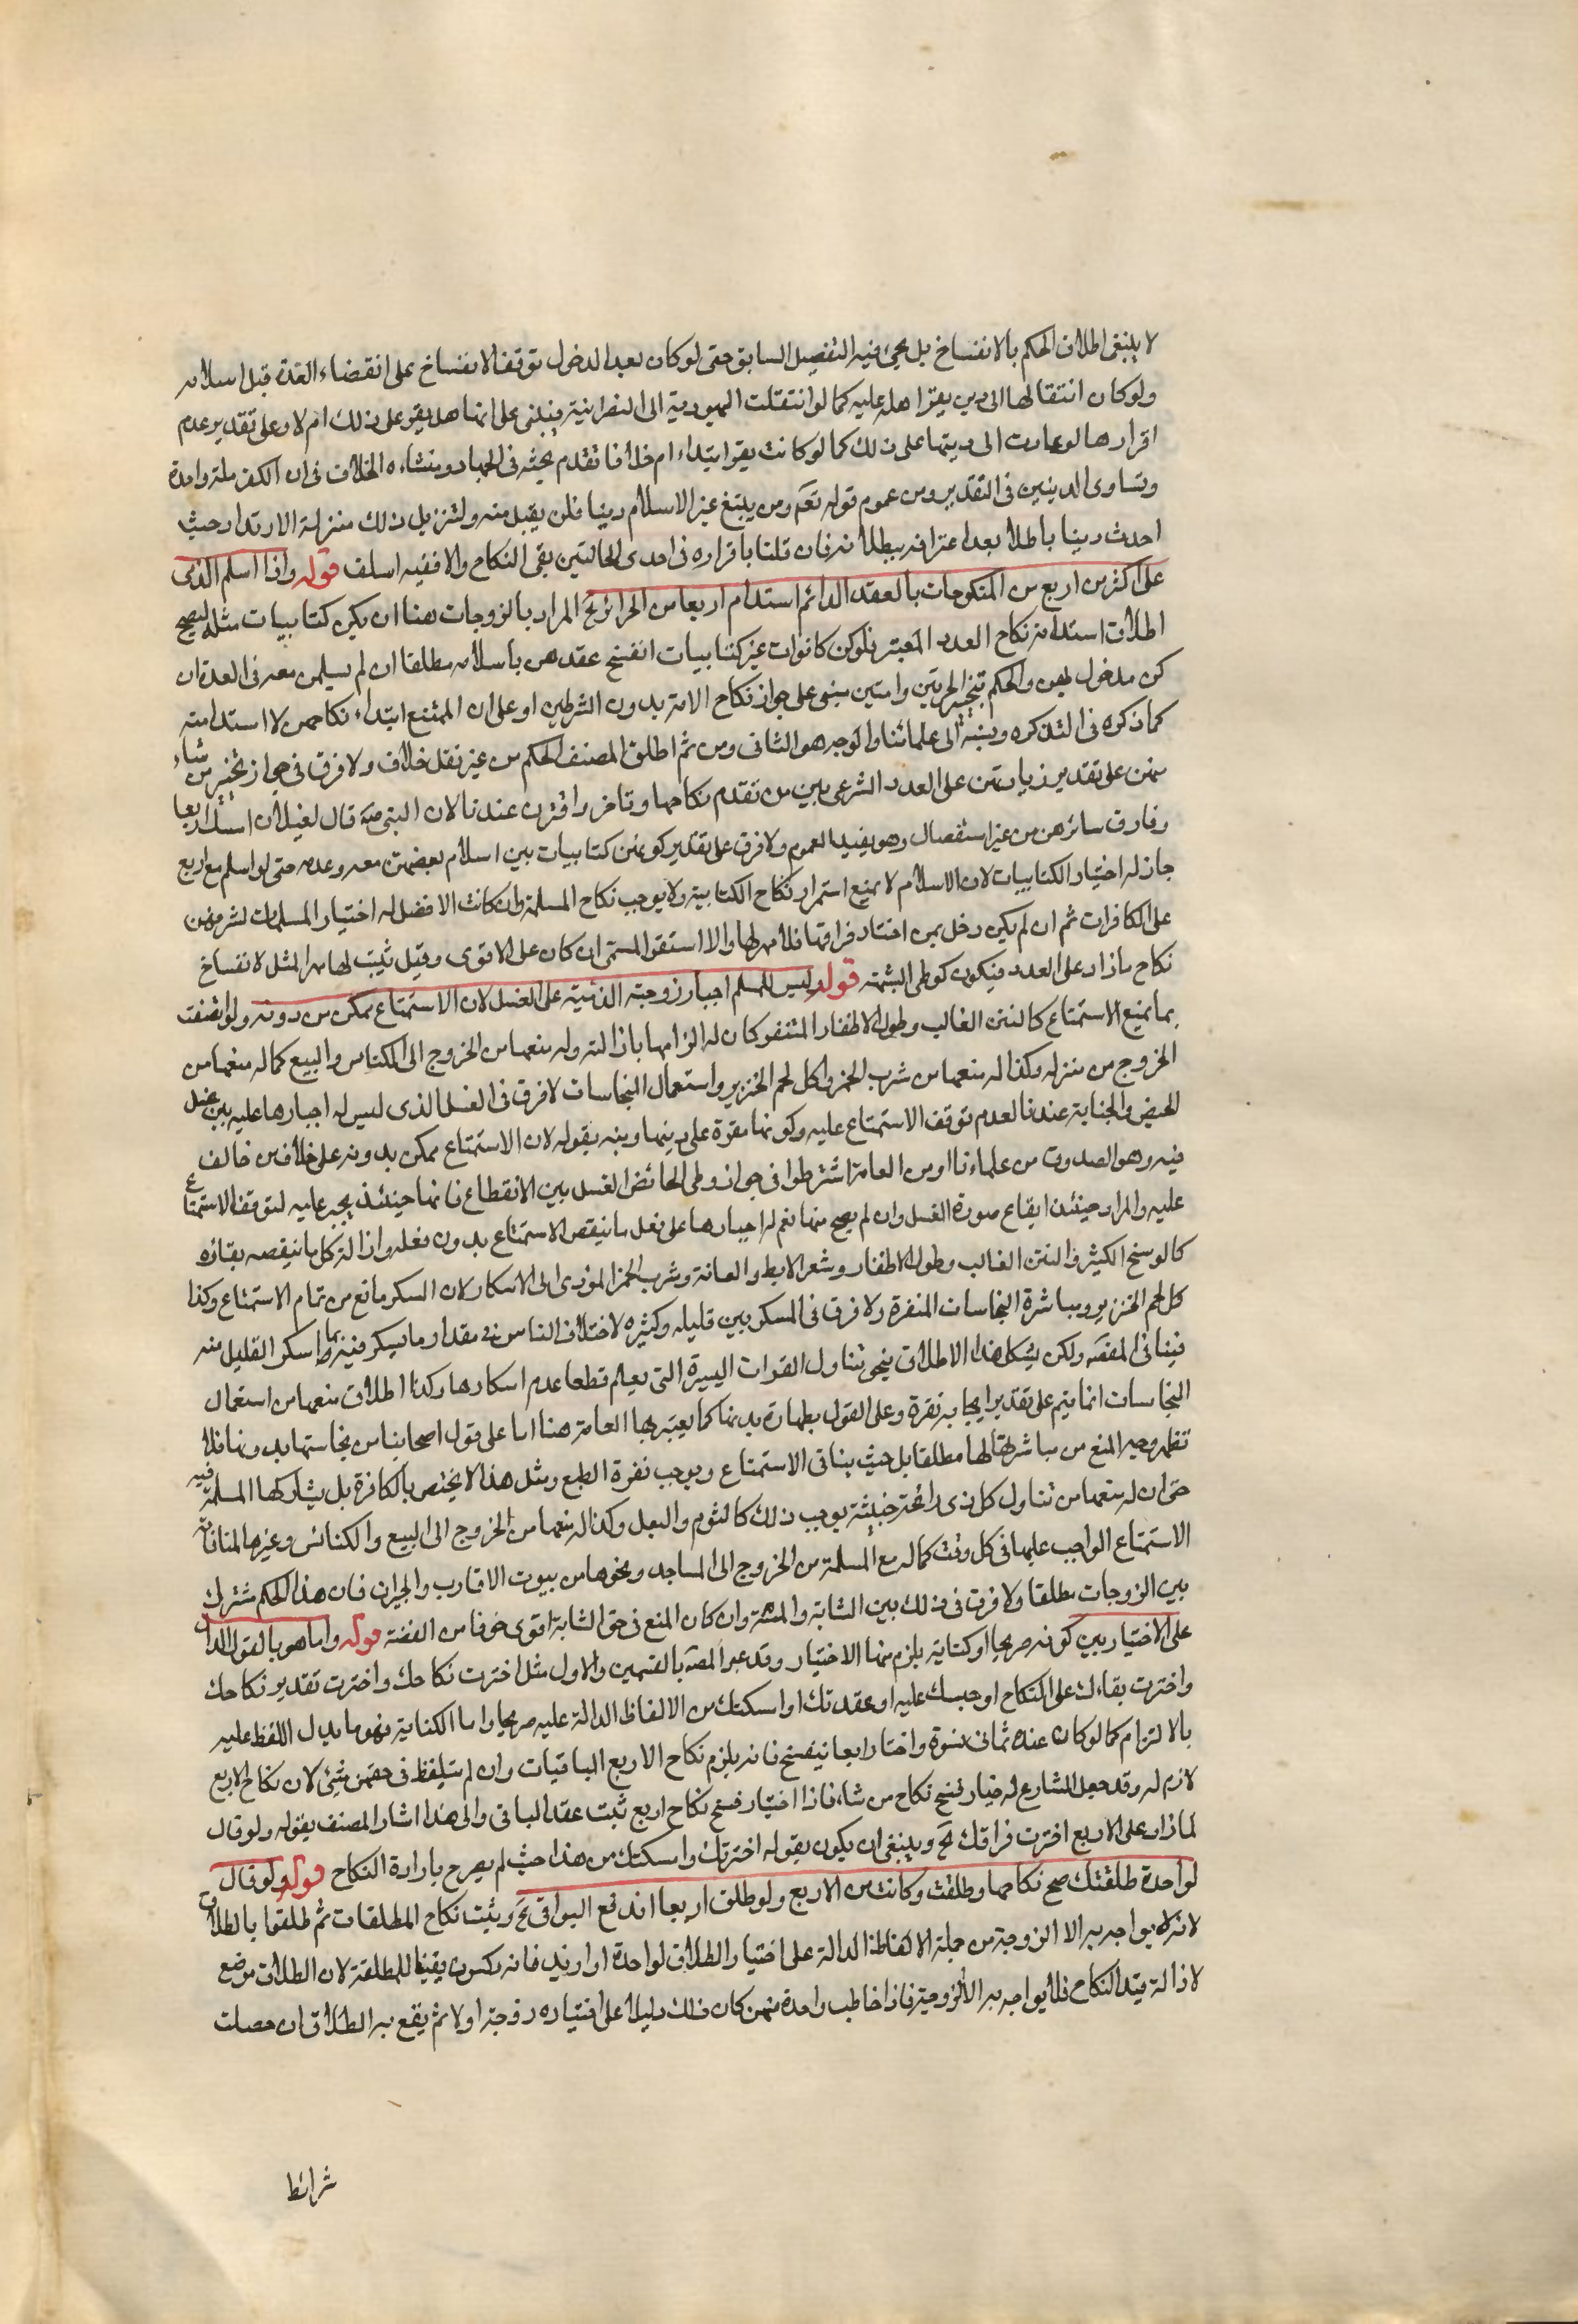 لا ينبغى اطلاق الحكم بالانفساخ بل يجئ فيه التفصيل السابق حتى لو كان بعد الدخول توقف الانفساخ على انقضاء العدة قبل اسلامه
ولو كان انتقالها الى دين يقر اهله عليه كما لو انتقلت اليهودية الى النصرانية فيبنى على انها هل يقر على ذلك ام لا وعلى تقدير عدم
اقرارها لو عادت الى دينها على ذلك كما لو كانت يقر ابتداء ام خلافا تقدم بحثه فى الجهاد ومنشاءه الخلاف فى ان الكفر ملة واحدة
وتساوى الدينين فى التقدير ومن عموم قوله تعم ومن يبتغ غير الاسلام دينا فلن يقبل منه ولتنزيل ذلك منزلة الارتداد حيث
احدث دينا باطلا بعد اعترافه ببطلانه فان قلنا باقراره فى احدى الحالتين بقى النكاح والا ففيه ما سلف قوله واذا اسلم الذمى
على اكثر من اربع من المنكوحات بالعقد الدائم استدام اربعا من الحرائر الخ المراد بالزوجات هنا ان يكن كتابيات مثله ليصح
اطلاق استدامة نكاح العدد المعتبر فلو كن كانوات غير كتابيات انفسخ عقدهن باسلامه مطلقا ان لم يسلمن معه فى العدة ان
كن مدخول بهن والحكم بتخير الحرتين وامتين مبنى على جواز نكاح الامة بدون الشرطين او على ان الممتنع ابتداء نكاحهن لا استدامته
كما ذكره فى التذكره ونسبه الى علمائنا والوجه هو الثانى ومن ثم اطلق المصنف الحكم من غير نقل خلاف ولا فرق فى جواز تخير من شاء
منهن على تقدير زيادتهن على العدد الشرعى بين من تقدم نكاحها وتاخر واقترن عندنا لان النبى ص قال لغيلان امسك اربعا
وفارق سائرهن من غير استفصال وهو يفيد العموم ولا فرق على تقدير كونهن كتابيات بين اسلام بعضهن معه وعدمه حتى لو اسلم مع اربع
جاز له اختيار الكتابيات لان الاسلام لا يمنع استمرار نكاح الكتابية ولا يوجب نكاح المسلمة وان كانت الافضل له اختيار المسلمات لشرفهن
على الكافرات ثم ان لم يكن دخل بمن اختار فراقها فلا مهر لها والا استقر المسمى ان كان على الاقوى وقيل ثبت لها مهر المثل لانفساخ
نكاح ما زاد على العدد فيكون كوطى الشبهة قوله ليس للمسلم اجبار زوجته الذمية على الغسل لان الاستمتاع ممكن من دونه ولو اتصفت
بما يمنع الاستمتاع كالنتن الغالب وطول الاظفار المنفر كان له الزامها بازالته وله منعها من الخروج الى الكنائس والبيع كما له منعها من
الخروج من منزله وكذا له منعها من شرب الخمر واكل لحم الخنزير واستعمال النجاسات لا فرق فى الغسل الذى ليس له اجبارها عليه بين غسل
الحيض والجنابة عندنا لعدم توقف الاستمتاع عليه وكونها مقرة على دينها ونبه بقوله لان الاستمتاع ممكن بدونه على خلاف من خالف
فيه وهو الصدوق من علماءنا ومن العامة اشترطوا فى جواز وطى الحائض الغسل بين الانقطاع فانها حينئذ يجبر عليه لتوقف الاستمتاع
عليه والمراد حينئذ ايقاع صورة الغسل وان لم يصح منها نعم له اجبارها على فعل ما ينقص الاستمتاع بدون فعله وازالة كل ما ينقصه بقاؤه
كالوسخ الكثير والنتن الغالب وطول الاظفار وشعر الابط والعانة وشرب الخمر المؤدى الى الاسكار لان السكر مانع من تمام الاستمتاع وكذا
كل لحم الخنزير ومباشرة النجاسات المنفرة ولا فرق فى المسكر بين قليله وكثيره لاختلاف الناس فى مقدار ما يسكر فيه فربما اسكر القليل منه
فينافى المقصد ولكن يشكل هذا الاطلاق بنحو تناول القوات اليسيرة التى يعلم قطعا عدم اسكارها وكذا اطلاق منعها من استعمال
النجاسات انما يتم على تقدير ايجابه نفرة وعلى القول بطهارة بدنها كما يعتبر بها العامة هنا اما على قول اصحابنا من نجاستها بدونها فلا
تظهر وجه المنع من مباشرتها لها مطلقا بل حيث ينافى الاستمتاع ويوجب نفرة الطبع ومثل هذا لا يختص بالكافرة بل يشاركها المسلمة فيه
حتى ان له منعها من تناول كل ذى رائحة خبيثة يوجب ذلك كالثوم والبصل وكذا له منعها من الخروج الى البيع والكنائس وغيرها لمنافاته
الاستمتاع الواجب عليها فى كل وقت كما له مع المسلمة من الخروج الى المساجد ونحوها من بيوت الاقارب والجيران فان هذا الحكم مشترك
بين الزوجات مطلقا ولا فرق فى ذلك بين الشابة والمسنة وان كان المنع فى حق الشابة اقوى خوفا من الفتنة قوله واما هو بالقول الدال
على الاختيار بين كونه صريحا او كناية يلزم منها الاختيار وقد عبر المصه بالقسمين والاول مثل اخترت نكاحك واخترت تقدير نكاحك
واخترت بقاءك على النكاح او حبسك عليه او عقدتك او امسكتك من الالفاظ الدالة عليه صريحا واما الكناية فهو ما يدل اللفظ عليه
بالالتزام كما لو كان عنده ثمانى نسوة واختار اربعا نيفسخ فانه يلزم نكاح الاربع الباقيات وان لم يتلفظ فى حقهن بشئ لان نكاح الاربع
لازم له وقد جعل الشارع له خيار فسخ نكاح من شاء فاذا اختيار فسخ نكاح اربع ثبت عقد الباقى والى هذا اشار المصنف بقوله ولو قال
لما زاد على الاربع اخترت فراقك الخ وينبغى ان يكون بقوله اخترتك وامسكتك من هذا حيث لم يصرح بارادة النكاح قوله ولو قال
لواحدة طلقتك صح نكاحها وطلقت وكانت من الاربع ولو طلق اربعا اندفع البواقى الخ ويثبت نكاح المطلقات ثم طلقوا بالطلاق
لانه لا يواجه به الا الزوجة من جملة الالفاظ الدالة على اختيار الطلاق لواحدة او ازيد فانه يكون يقينا للمطلقة لان الطلاق موضع
لازالة قيد النكاح فلا يواجه به الا الزوجة فاذا خاطب واحدة منهن كان ذلك دليلا على اختياره زوجته اولا ثم يقع به الطلاق ان حصلت
شرائط